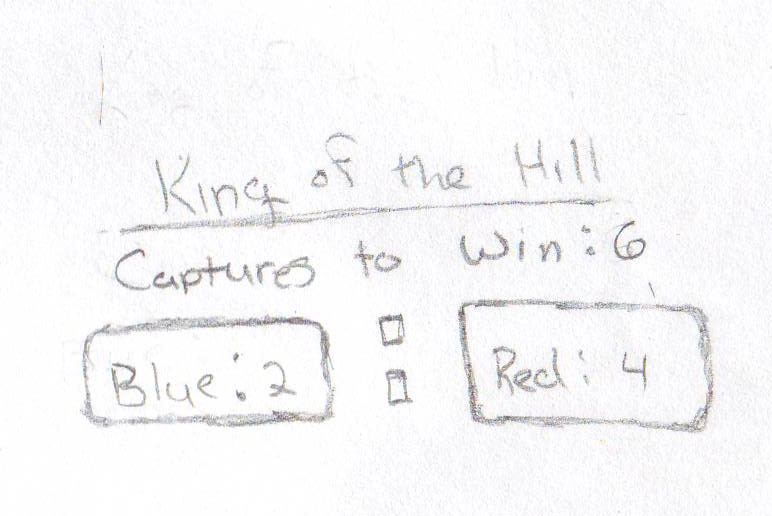 King of the Hill
Captures to Win: 6
Blue: 2
Red: 4